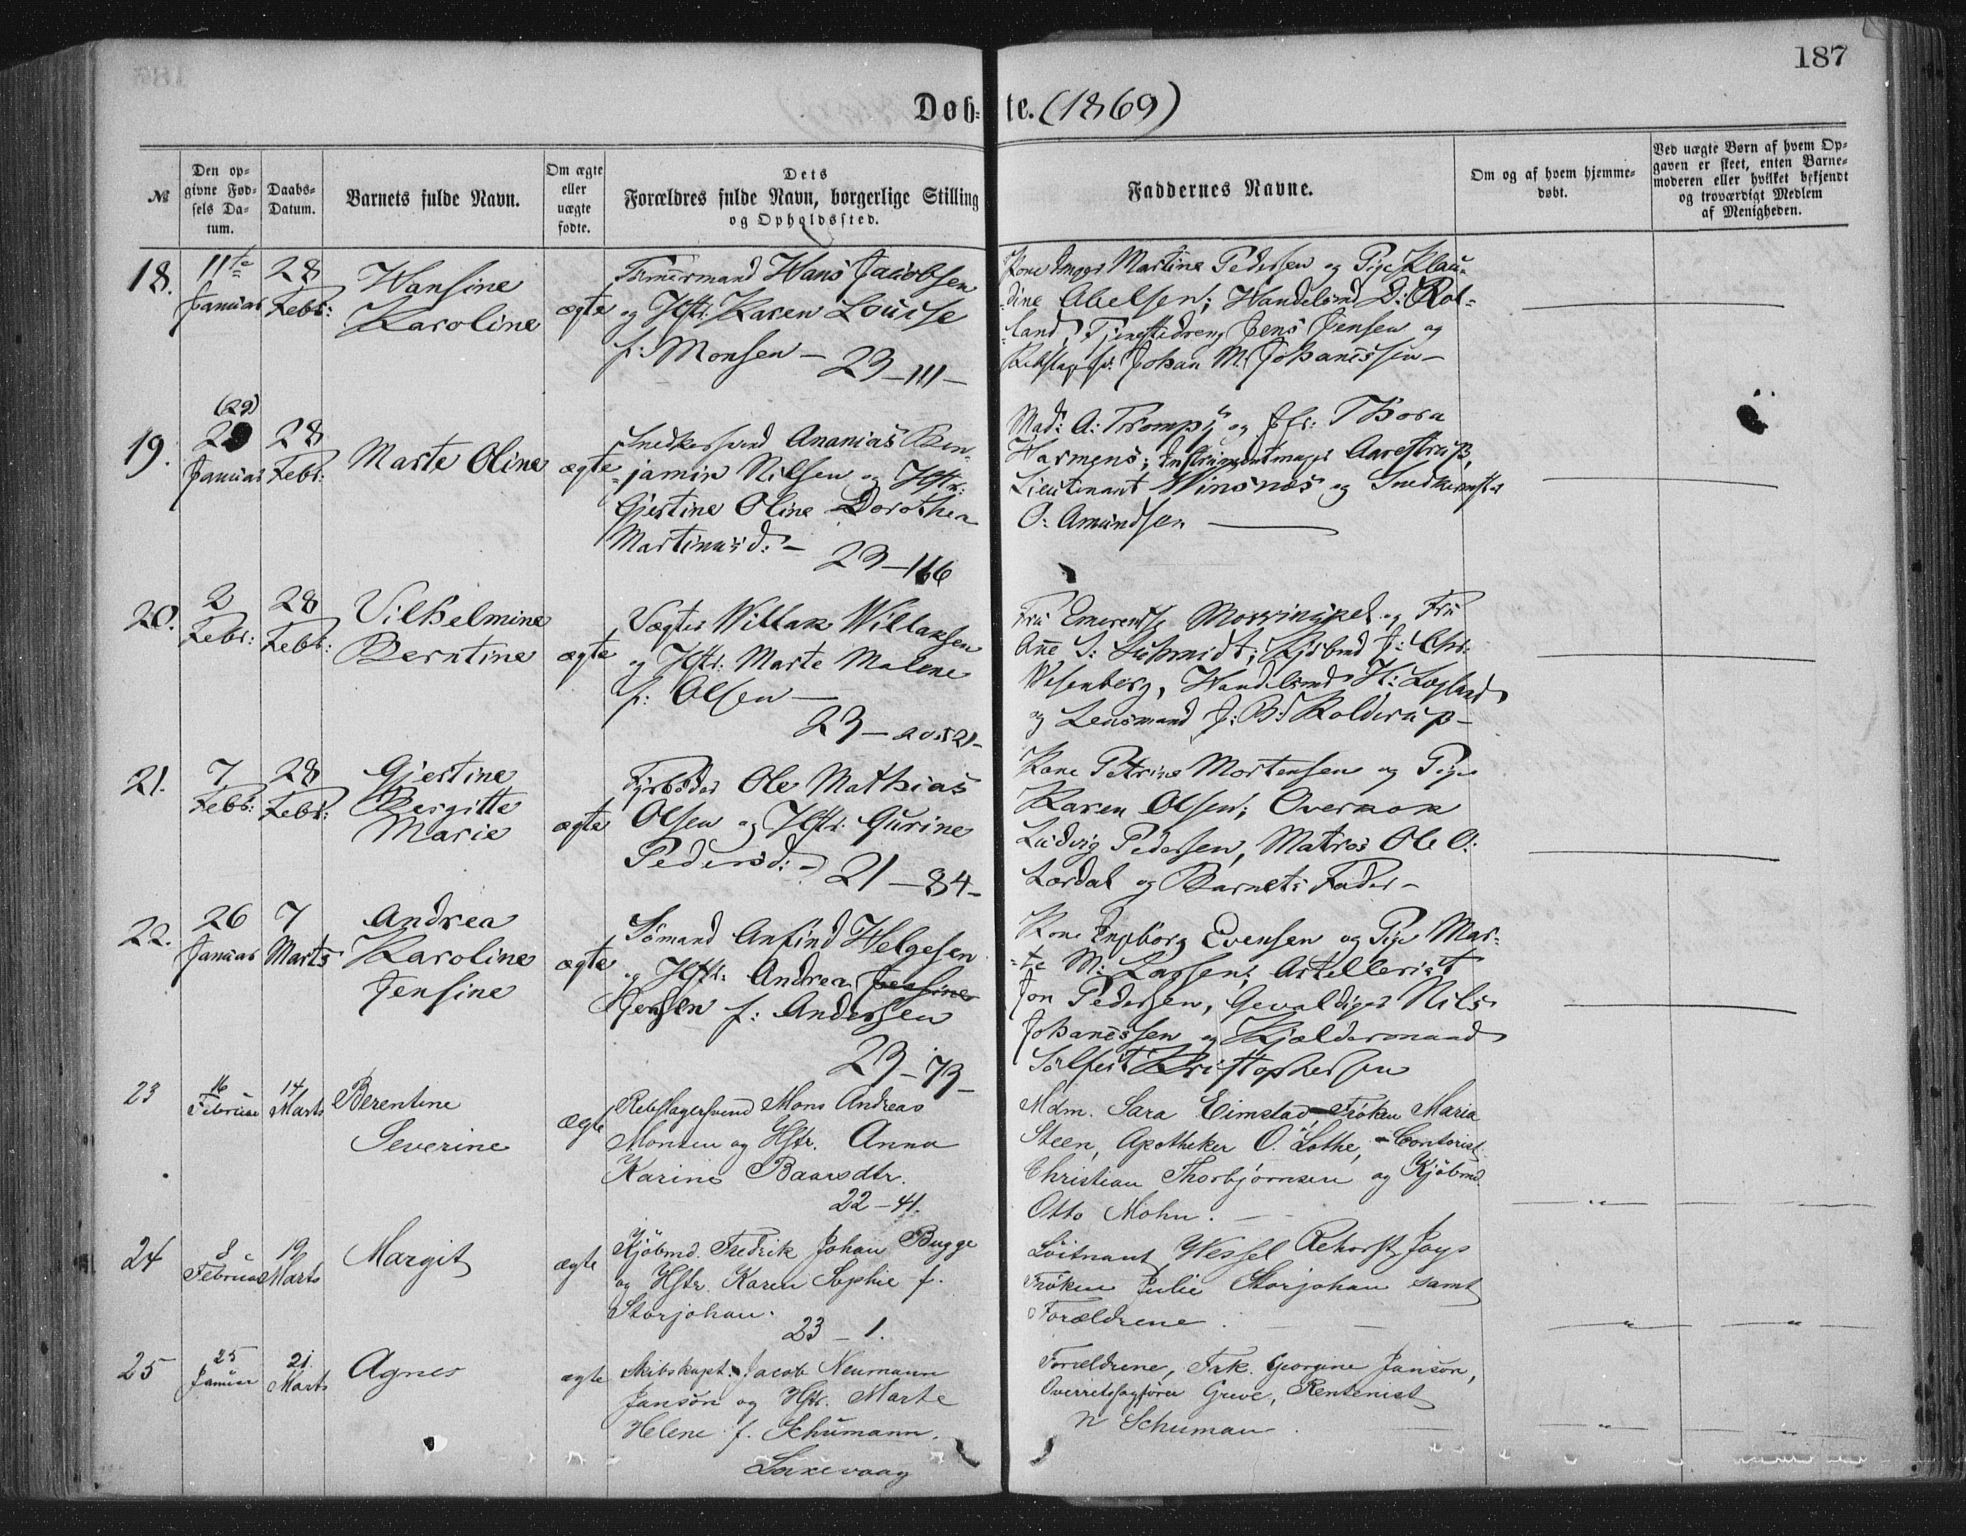 187
Døbte. (1869)
№
Den opgivne Fødsels Datum.
Daabs-Datum.
Barnets fulde Navn.
Om ægte eller uægte fødte.
Dets Forældres fulde Navn, borgerlige Stilling og Opholdssted.
Faddernes Navne.
Om og af hvem hjemmedøbt.
Ved uægte Børn af hvem Opgaven er skeet, enten Barnemoderen eller hvilket bekjendt og troværdigt Medlem af Menigheden.
18. 11te Januar 28 Febr:
Hansine
Karoline
ægte
Tømmermand Hans Jacobsen
og Hstr: Karen Louise
f: Monsen —
23 — 111 —
Kone Martine Pedersen og Pige Klau-
dine Abelsen; Handelsmd D: Rol-
land, Tjenestedreng Jens Jensen og
Johan M: Johanessen —
19. (29) Januar 28 Febr:
Marte Oline
ægte
Snedkersvend Ananias Ben-
jamin Nilsen og Hstr:
Gjertine Oline Dorothea
Martinusd: —
23 — 116
Mad: A: Trompy og Jfr: Thora
Harmens; Instrumentmager Aarestrup,
Lieutenant Winsnæs og Snedkermstr
O: Amundsen
20. 2 Febr: 28 Febr:
Vilhelmine
Berntine
ægte
Vægter Willak Willaksen
og Hstr: Marte Malene
f: Olsen —
23 —
Fru Emerentse og Fru
Ane S: Schmidt; Kjøbmd J: Chr.
Wesenberg, Handelsmd H: Løgland
og Lensmand J: B: Kolderup —
21. 7 Febr: 28 Febr:
Gjertine
Bergitte
Marie
ægte
Fyrbøder Ole Mathias
Olsen og Hstr: Gurine
Pedersd: —
21 — 84 —
Kone Petrine Mortensen og Pige
Karen Olsen; Overkok
Ludvig Pedersen, Matros Ole O:
Lordal og Barnets Fader —
22. 26 Januar 7 Marts
Andrea
Karoline
Jensine
ægte
Sømand Anfind Helgesen
og Hstr: Andrea Jensine
Jensen f: Andersen
23 — 73 —
Kone Ingborg Evensen og Pige Mar-
te M: Larsen; Artellerist
Jon Pedersen, Gevaldiger Nils
Johanessen og Kjældermand
Sølfest Kristophersen
23 16 Februar 14 Marts
Berentine
Severine
Ægte
Rebslagersvend Mons Andreas
Monsen og Hstr. Anna
Karine Baarsdtr.
22 — 41.
Mdm. Sara Eimstad, Frøken Maria
Steen, Apotheker O. Lothe, Contorist
Christian Thorbjørnsen og Kjøbmd.
Otto Mohn.
24 8 Februar 19 Marts
Margit
ægte
Kjøbmd. Fredrik Johan Bugge
og Hstr. Karen Sophie f.
Storjohan.
23 — 1.
Løitnant Wessel
Frøken Julie Storjohan samt
Forældrene.
25 25 Januar 21. Marts
Agnes
ægte
Skibskapt. Jacob Neumann
Janson og Hstr. Marte
Helene f. Schumann.
Laxevaag
Forældrene, Frk. Georgine Janson,
Overretssagfører Greve, Rentenist
N Schuman.